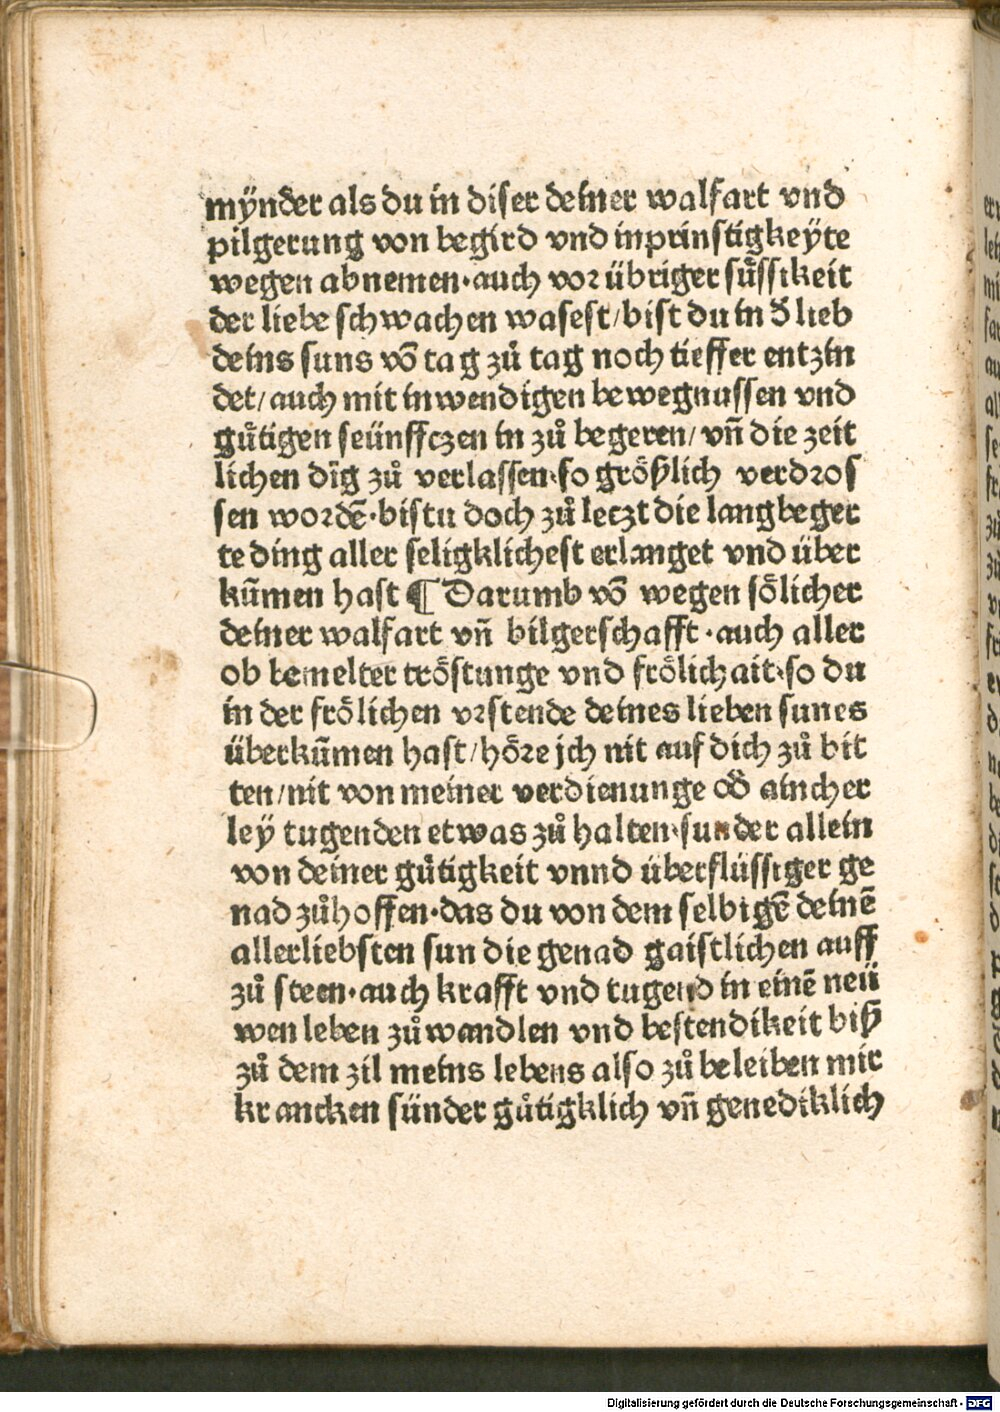 mÿnder als du in diser deiner walfart vnd
pilgerung von begird vnd inprinstigkeÿte
wegen abnemen·auch voꝛ übriger suͤssikeit
der liebe schwachen wasest/bist du in d̄ lieb
deins suns vō tag zů tag noch tieffer entzin
det/auch mit inwendigen bewegnussen vnd
guͤtigen seünffczen in zů begeren/vn̄ die zeit
lichen dīg zů verlassen·so groͤßlich verdꝛos
sen woꝛdē·bistu doch zů letzt die langbeger
te ding aller seligklichest erlanget vnd über
kūmen hast ¶ Darumb vō wegen soͤlicher
deiner walfart vn̄ bilgerschafft·auch aller
ob bemelter troͤstunge vnd froͤlichait·so du
in der froͤlichen vꝛstende deines lieben sunes
überkūmen hast/hoͤꝛe jch nit auf dich zů bit
ten/nit von meiner verdienunge od̄ aincher
leÿ tugenden etwas zů halten·sunder allein
von deiner guͤtigkeit vnnd überflüssiger ge
nad zůhoffen·das du von dem selbigē deinē
allerliebsten sun die genad gaistlichen auff
zů steen·auch krafft vnd tugend in einē neü
wen leben zů wandlen vnd bestendikeit biß
zů dem zil meins lebens also zů beleiben mir
krancken sünder guͤtigklich vn̄ genediklich
Digitalisierung gefördert durch die Deutsche Forschungsgemeinschaft - DFG